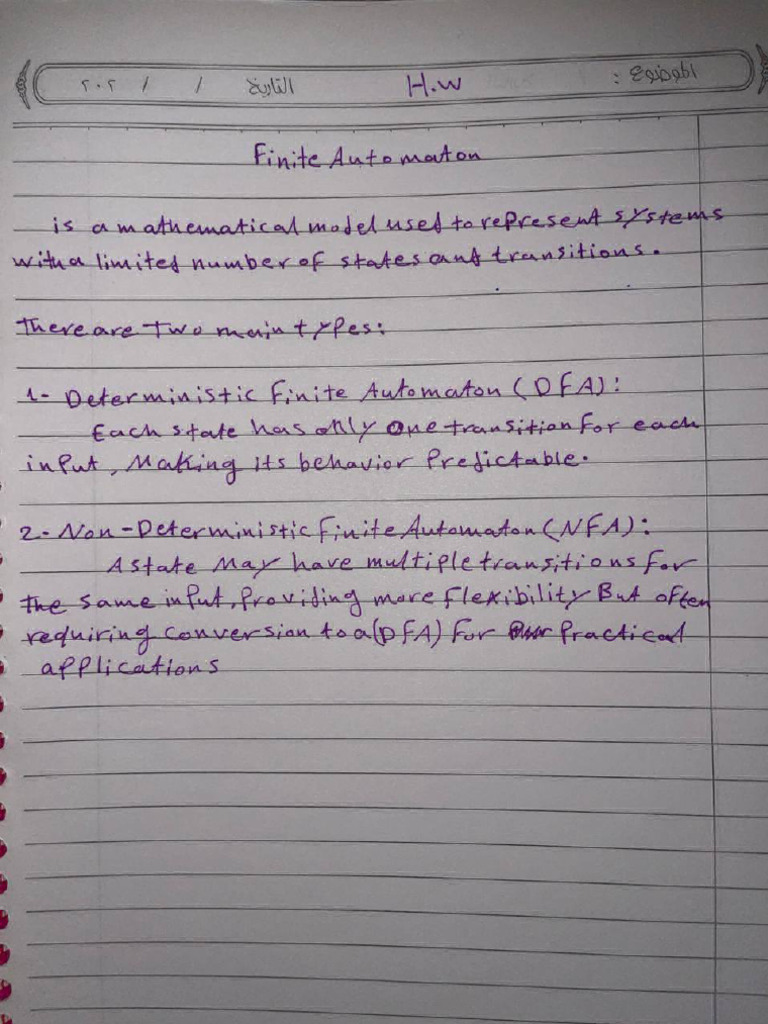 الموضوع : H.w التاريخ / / ٢٠٢
Finite Automaton
is a mathematical model used to represent systems
with a limited number of states and transitions.
There are Two main types:
1- Deterministic Finite Automaton (DFA):
Each state has only one transition for each
input, Making its behavior Predictable.
2- Non-Deterministic Finite Automaton (NFA):
A state May have multiple transitions for
the same input, Providing more flexibility But often
requiring conversion to a (DFA) for Practical
applications